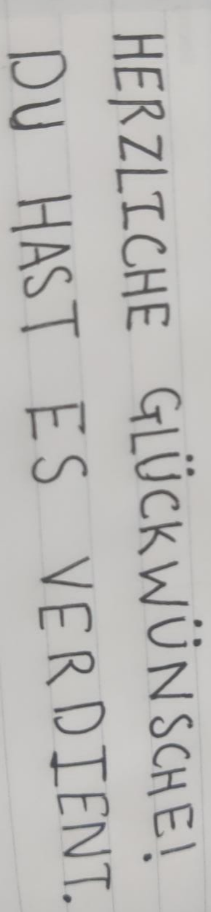 HERZLICHE GLÜCKWÜNSCHE!
DU HAST ES VERDIENT.